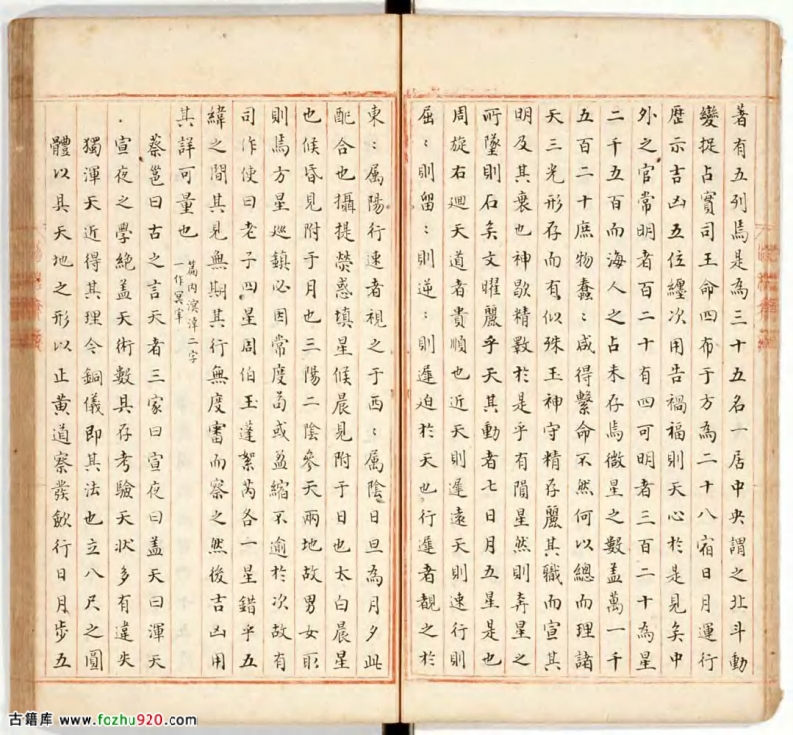 著有五列焉是為三十五名一居中央謂之北斗動
變挺占寔司王命四布于方為二十八宿日月運行
歷示吉凶五位纏次用告禍福則天心於是見矣中
外之官常明者百二十有四可明者三百二十為星
二千五百而海人之占未存焉微星之數盖萬一千
五百二十庶物蠢:咸得繫命不然何以總而理諸
天三光形存而有似殊玉神守精存麗其職而宣其
明及其衰也神歇精斁於是乎有隕星然則奔星之
所墜則石矣文曜麗乎天其動者七日月五星是也
周旋右迴天道者貴順也近天則遲遠天則速行則
屈:則留:則逆:則遲迫於天也行遲者覩之於
東:属陽行速者視之于西:属陰日旦為月夕此
配合也攝提熒惑填星候晨見附于日也太白晨星
也候昏見附于月也三陽二陰參天兩地故男女取
則焉方星巡鎮必因常度苟或盈縮不逾於次故有
司作使曰老子四星周伯玉蓬絮芮各一星錯乎五
緯之間其見無期其行無度寔而察之然後吉凶用
其詳可量也 篇内溟涬二字
一作冥宰
蔡邕曰古之言天者三家曰宣夜曰盖天曰渾天
宣夜之學絶盖天術數具存考驗天状多有違失
獨渾天近得其理今銅儀即其法也立八尺之圓
體以具天地之形以止黄道察發斂行日月步五
古籍库 www.fozhu920.com